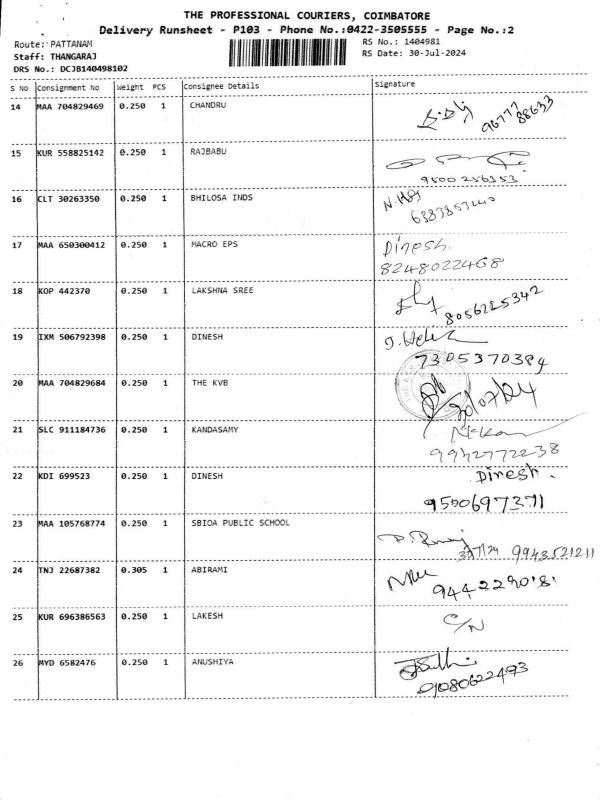 THE PROFESSIONAL COURIERS, COIMBATORE
Delivery Runsheet - P103 - Phone No.:0422-3505555 - Page No.:2
Route: PATTANAM
RS No.: 1404981
Staff: THANGARAJ
RS Date: 30-Jul-2024
DRS No.: DCJB140498102
S No Consignment No Weight PCS Consignee Details Signature
14 MAA 704829469 0.250 1 CHANDRU
96777 88633
15 KUR 558825142 0.250 1 RAJBABU
9500256353
16 CLT 30263350 0.250 1 BHILOSA INDS
17 MAA 650300412 0.250 1 MACRO EPS Dinesh.
8248022468
18 KOP 442370 0.250 1 LAKSHNA SREE
8056225342
19 IXM 506792398 0.250 1 DINESH
7305370384
20 MAA 704829684 0.250 1 THE KVB
30/07/24
21 SLC 911184736 0.250 1 KANDASAMY
9942772238
22 KDI 699523 0.250 1 DINESH Dinesh.
9500697371
23 MAA 105768774 0.250 1 SBIOA PUBLIC SCHOOL
9943521211
24 TNJ 22687382 0.305 1 ABIRAMI
25 KUR 696386563 0.250 1 LAKESH C/N
26 MYD 6582476 0.250 1 ANUSHIYA
9080622493